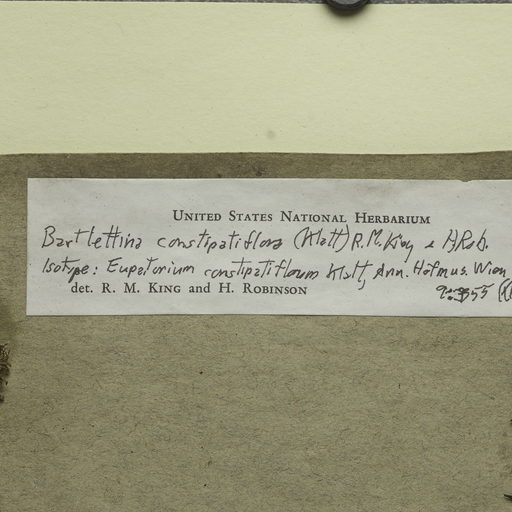 UNITED STATES NATIONAL HERBARIUM
Bartlettina constipatiflora (Klatt) R.M. King & H.Rob.
Isotype: Eupatorium constipatiflorum Klatt, Ann. Hofmus. Wien
det. R. M. KING and H. ROBINSON